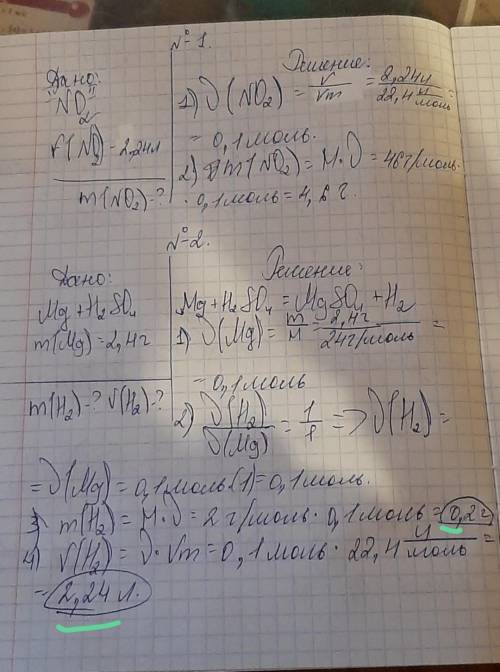 №1.
Дано:
"NO2"
V(NO2)=2,24л
m(NO2)-?
Решение:
1) ν(NO2) = V/Vm = 2,24л/22,4 л/моль =
= 0,1 моль.
2) m(NO2) = M·ν = 46г/моль·
· 0,1 моль = 4,6 г.
№2.
Дано:
Mg+H2SO4
m(Mg)=2,4г
m(H2)-? V(H2)-?
Решение:
Mg+H2SO4 = MgSO4+H2
1) ν(Mg) = m/M = 2,4г/24г/моль =
= 0,1 моль
2) ν(H2)/ν(Mg) = 1/1 => ν(H2) =
= ν(Mg) = 0,1 моль(1) = 0,1 моль.
3) m(H2) = M·ν = 2 г/моль · 0,1 моль = 0,2г
4) V(H2) = ν·Vm = 0,1 моль · 22,4 л/моль =
= 2,24 л.